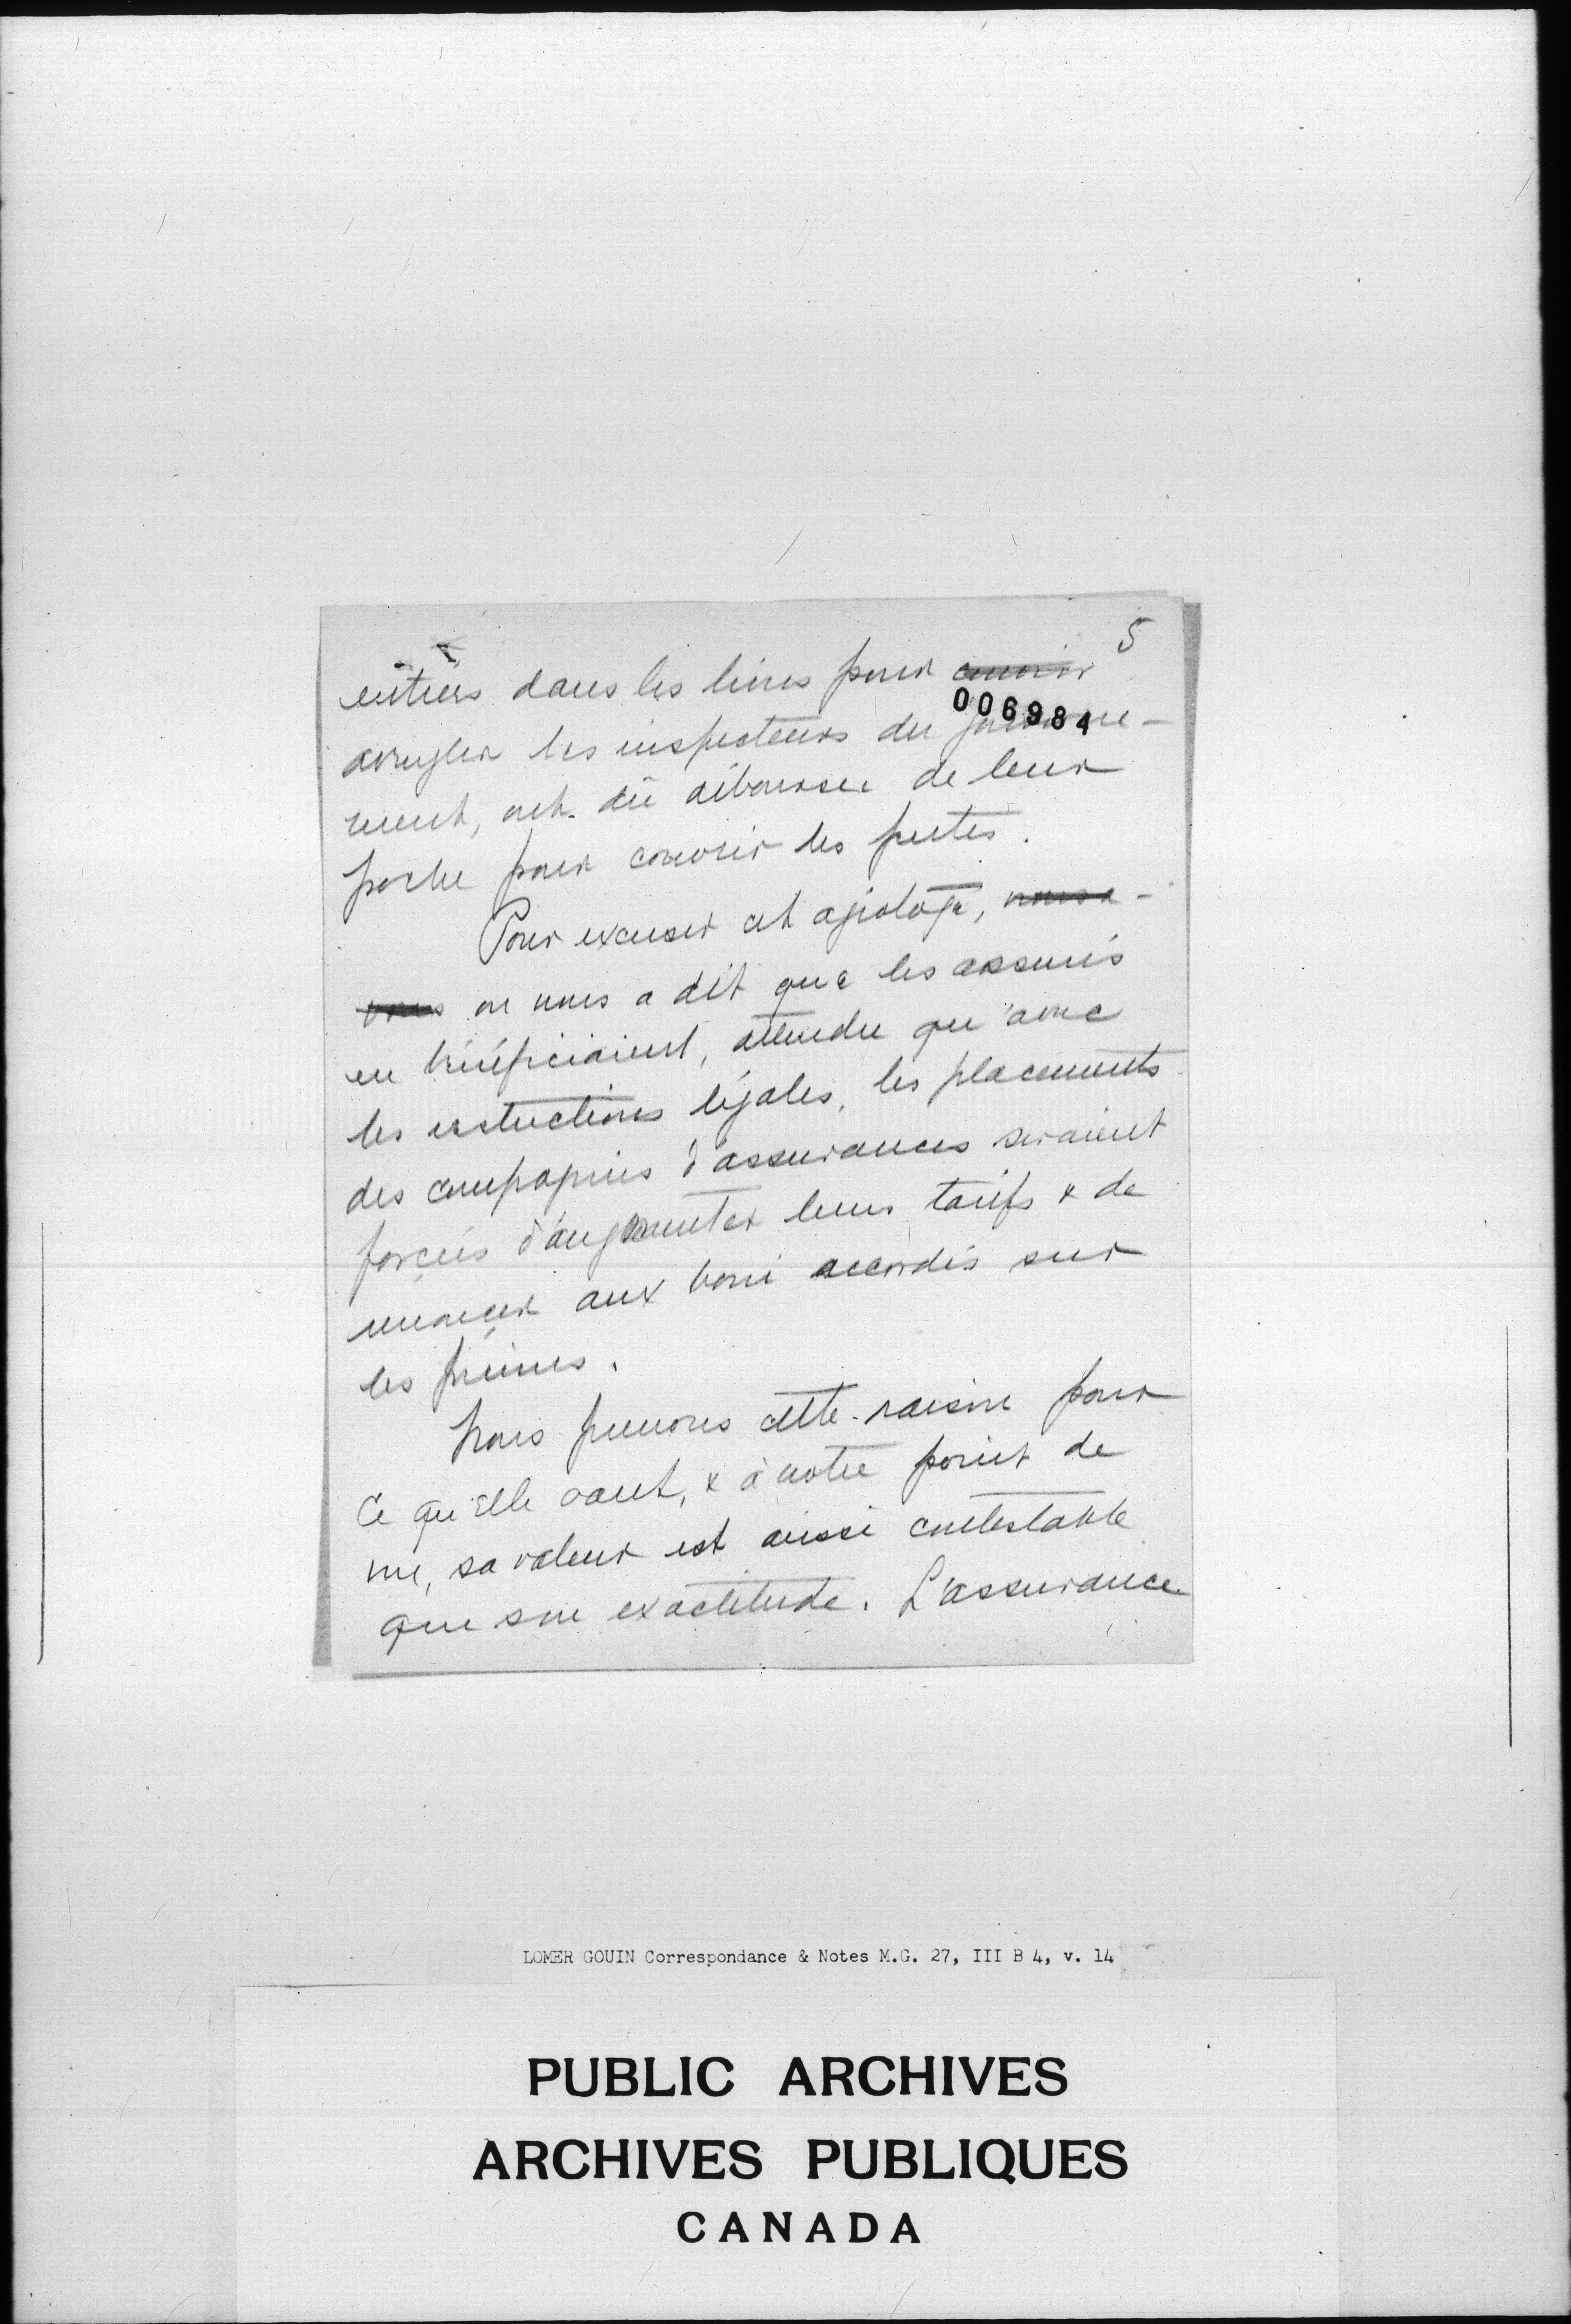 5
entrées dans les livres pour couvrir
006984
aveugler les inspecteurs du gouverne-
ment, ont dû débourser de leur
poche pour couvrir les pertes.
Pour excuser cet agiotage, nous a-
vons on nous a dit que les assurés
en bénéficiaient, attendu qu'avec
les restrictions légales, les placements
des compagnies d'assurances seraient
forcées d'augmenter leurs tarifs & de
renoncer aux boni accordés sur
les primes.
Nous prenons cette raison pour
ce qu'elle vaut, & à notre point de
vue, sa valeur est aussi contestable
que son exactitude. L'assurance
LOMER GOUIN Correspondance & Notes M.G. 27, III B 4, v. 14
PUBLIC ARCHIVES
ARCHIVES PUBLIQUES
CANADA